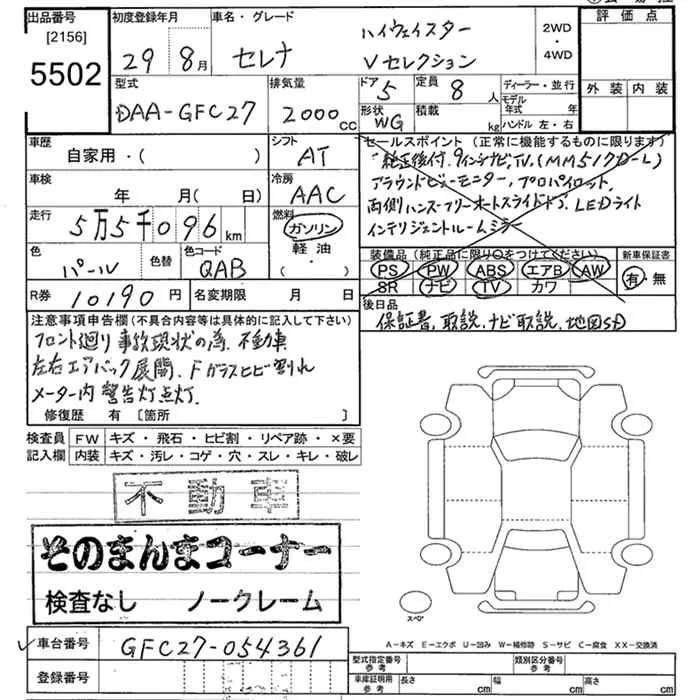 出品番号 初度登録年月 車名・グレード 評価点
[2156]
5502
29 8月 セレナ ハイウェイスター Vセレクション 2WD・4WD
外装 内装
型式 排気量 ドア 定員 ディーラー・並行
DAA-GFC27 2000cc 5 8人 モデル年式 年
形状 積載 ハンドル 左・右
WG kg
車歴 シフト セールスポイント (正常に機能するものに限ります)
自家用・( ) AT 純正後付.9インチナビTV.(MM517D-L)
車検 冷房 アラウンドビューモニター,プロパイロット,
年 月(日) AAC 両側ハンズフリーオートスライドドア.LEDライト
走行 燃料 インテリジェントルームミラー
5万5千096km ガソリン・軽油・
装備品(純正品に限り○をつけてください) 新車保証書
色 色替 色コード PS PW ABS エアB AW 有・無
パール QAB SR ナビ TV カワ
R券 10190円 名変期限 月 日 後日品
保証書,取説,ナビ取説,地図SD
注意事項申告欄(不具合内容等は具体的に記入して下さい)
フロント廻り事故現状の為、不動車
左右エアバック展開、Fガラスヒビ割れ
メーター内警告灯点灯.
修復歴 有〔箇所 〕
検査員 FW キズ・飛石・ヒビ割・リペア跡・×要
記入欄 内装 キズ・汚レ・コゲ・穴・スレ・キレ・破レ
不動車
そのまんまコーナー
検査なし ノークレーム
スペア
A-キズ E-エクボ U-凹み W-補修跡 S-サビ C-腐食 XX-交換済
車台番号 GFC27-054361
型式指定番号 参考 類別区分番号 参考
登録番号
車庫証明用 参考 長さ cm 幅 cm 高さ cm